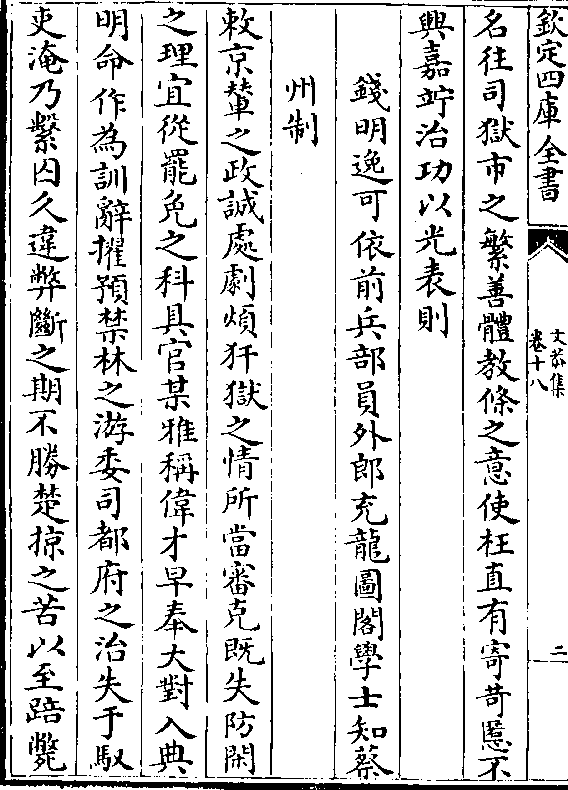 欽定四庫全書
文恭集
卷十八
二
名往司獄市之繁善體教條之意使枉直有寄苛慝不
興嘉竚治功以光表則
錢明逸可依前兵部員外郎充龍圖閣學士知蔡
州制
敕京輦之政誠處劇煩犴獄之情所當審克既失防閑
之理宜從罷免之科具官某雅稱偉才早奉大對入典
明命作為訓辭擢預禁林之游委司都府之治失于馭
吏淹乃繫囚久違弊斷之期不勝楚掠之苦以至踣斃